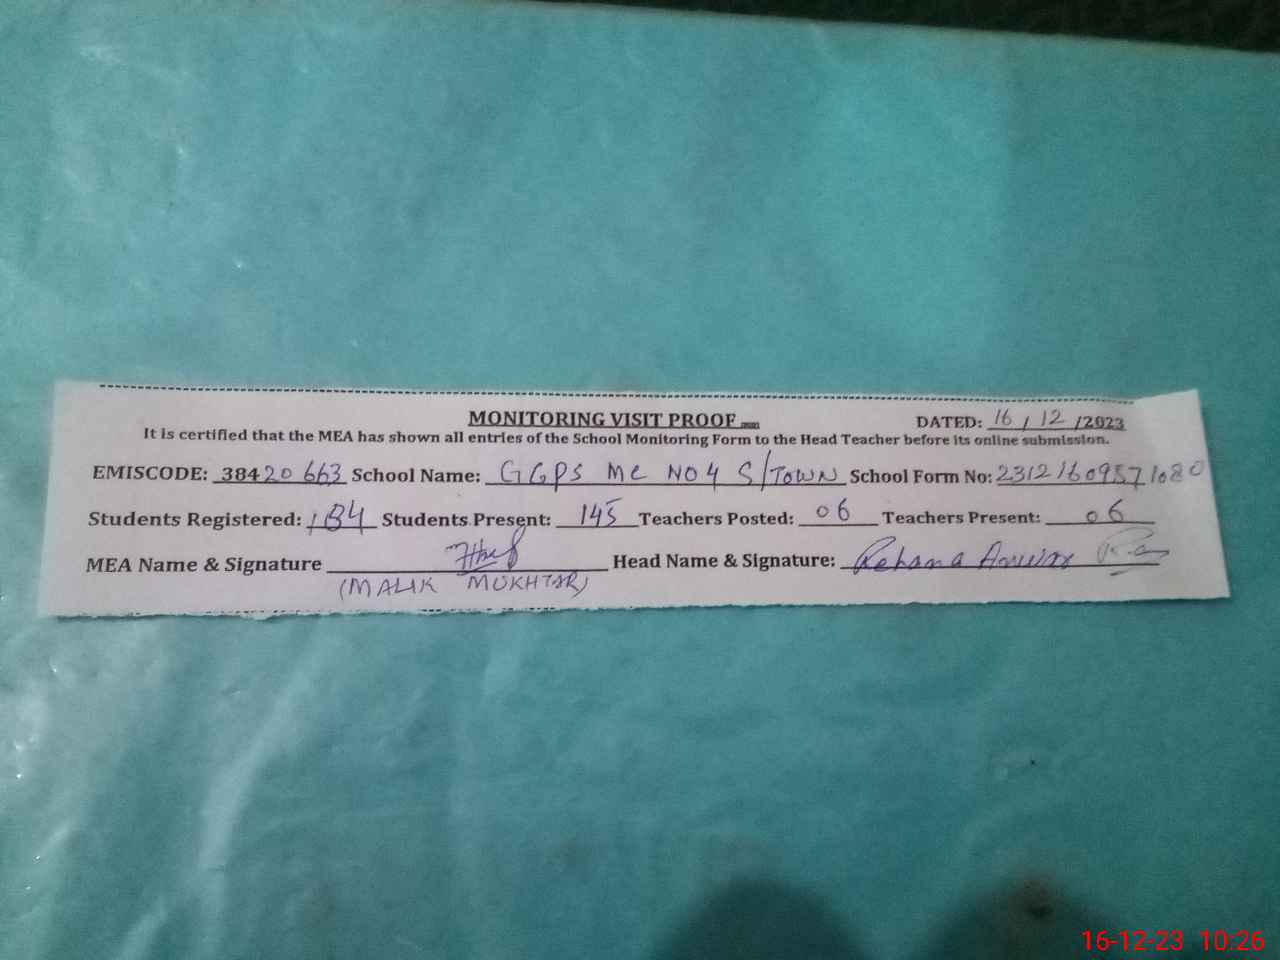 MONITORING VISIT PROOF DATED: 16 / 12 /2023
It is certified that the MEA has shown all entries of the School Monitoring Form to the Head Teacher before its online submission.
EMISCODE: 38420663 School Name: GGPS MC NO 4 S/TOWN School Form No: 23121609571080
Students Registered: 184 Students Present: 145 Teachers Posted: 06 Teachers Present: 06
MEA Name & Signature Head Name & Signature: Rehana Anwar
(MALIK MUKHTAR)
16-12-23 10:26